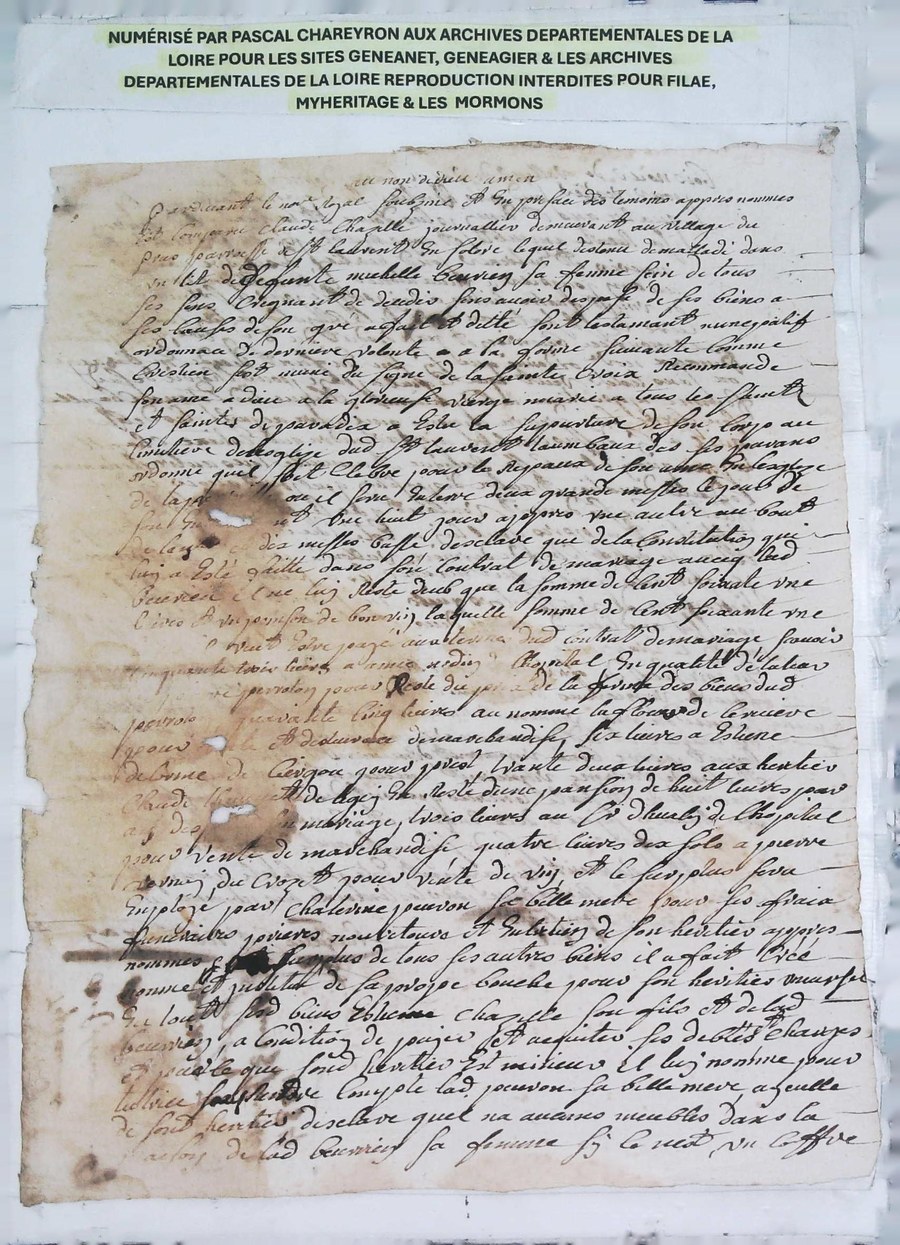 NUMÉRISÉ PAR PASCAL CHAREYRON AUX ARCHIVES DEPARTEMENTALES DE LA
LOIRE POUR LES SITES GENEANET, GENEAGIER & LES ARCHIVES
DEPARTEMENTALES DE LA LOIRE REPRODUCTION INTERDITES POUR FILAE,
MYHERITAGE & LES MORMONS
au nom de dieu amen
Pardevant le no.re Royal soubsigné et en presence des temoins appres nommes
Est comparu Claude Chapelle journallier demeurant au village du
parroesse de St laurent En Solore lequel detenu de malladie dans
un lit de deffunte michelle sa femme sein de tous
ses sens Creignant de deceder sens avoir desposé de ses biens a
ses causes de son gré a fait et dicté sont testamant nuncupatif
ordonnace de derniere volonte a la forme suivante Comme
Chretien s'est muni du signe de la sainte Croix Recommande
son ame a dieu a la glorieuse vierge marie a tous les saints
et saintes de paradis a Eslu la sepourture de son corps au
simitiere de leglize dud St laurent tumbeaux des ses parans
ordonne quil soit Celebré pour le Repaux de son ame En leglize
de la ou il sera Enterré deux grande messes le jour de
son une huit jour appres une autre au bout
de dix messes basse desclare que de la Constitution qui
luy a Esté faitte dans son Contrat de mariage avecq lad
il ne luy Reste deub que la somme de Cent soixante une
livres et un poinson de bon vin laquelle somme de Cent soixante une
veut Estre payé aux termes dud contrat de mariage savoir
Cinquante trois livres a l'hopital En qualité de
pour Reste du prix de la ferme des biens dud
quarante cinq livres au nommé
pour et de marchandise six livres a Estiene
delorme de pour prest trante deux livres aux heritier
Claude de En Reste dune pansion de huit livres par
mariage, trois livres au Sr de lhopital
pour vente de marchandise quatre livres dix sols a pierre
du Crozet pour vente de vin et le surplus sera
Employé par Chaterine sa belle mere pour ses fraix
funeraires prieres nourriture et Entretien de son heritier appres
nommés surplus de tous ses autres biens il a fait Créé
nommé et institué de sa propre bouche pour son heritier
En tous sesd biens Estiene Chapelle son fils et de lad
a Condition de payer et acquiter ses debtes Charges
et parce que sond heritier Est mineur il luy nomme pour
tutrice lad sa belle mere ayeulle
de sond heritier desclare quel na aucuns meubles dans la
maison de lad sa femme sy ce nest un coffre